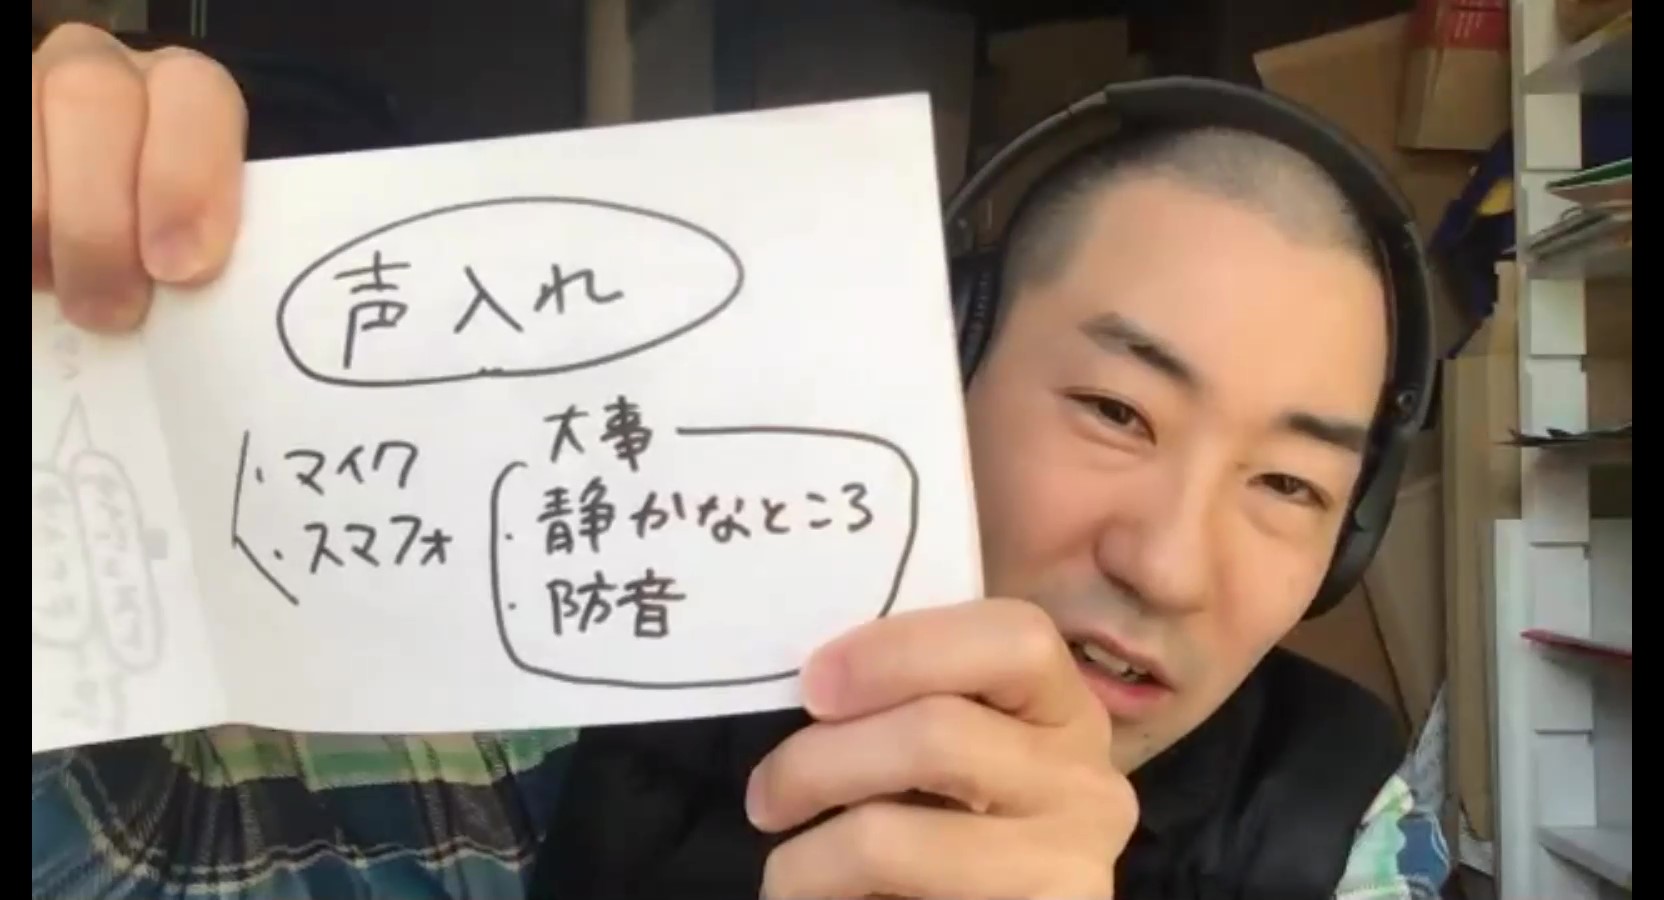 声入れ
・マイク
・スマフォ
大事
・静かなところ
・防音